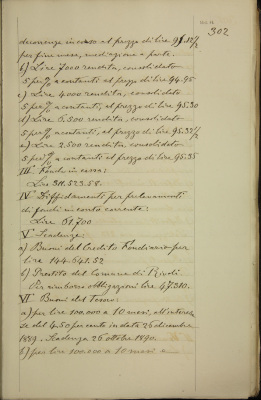 302
decorrenza in corso al prezzo di lire 95.32½
per fine mese, mediazione a parte.
b) Lire 7000 rendita, consolidato
5 per% a contanti al prezzo di lire 94.95
c) Lire 4000 rendita, consolidato
5 per% a contanti, al prezzo di lire 95.30
d) Lire 5.500 rendita, consolidato
5 per% a contanti, al prezzo di lire 95.32½
e) Lire 2.500 rendita, consolidato
5 per% a contanti al prezzo di lire 95.35
III° Fondo in cassa:
Lire 311.523.58.
IV° Diffidamento per prelevamenti
di fondi in conto corrente:
Lire 61,700
V° Scadenze:
a) Buoni del Credito Fondiario per
lire 144.641.52
b) Prestito del Comune di Rivoli
Per rimborso obbligazioni lire 47.310.
VI° Buoni del Tesoro:
a) per lire 100.000 a 10 mesi, all'interes
se del 4.50 per cento in data 26 dicembre
1889. Scadenza 26 ottobre 1890.
b) per lire 100.000 a 10 mesi a